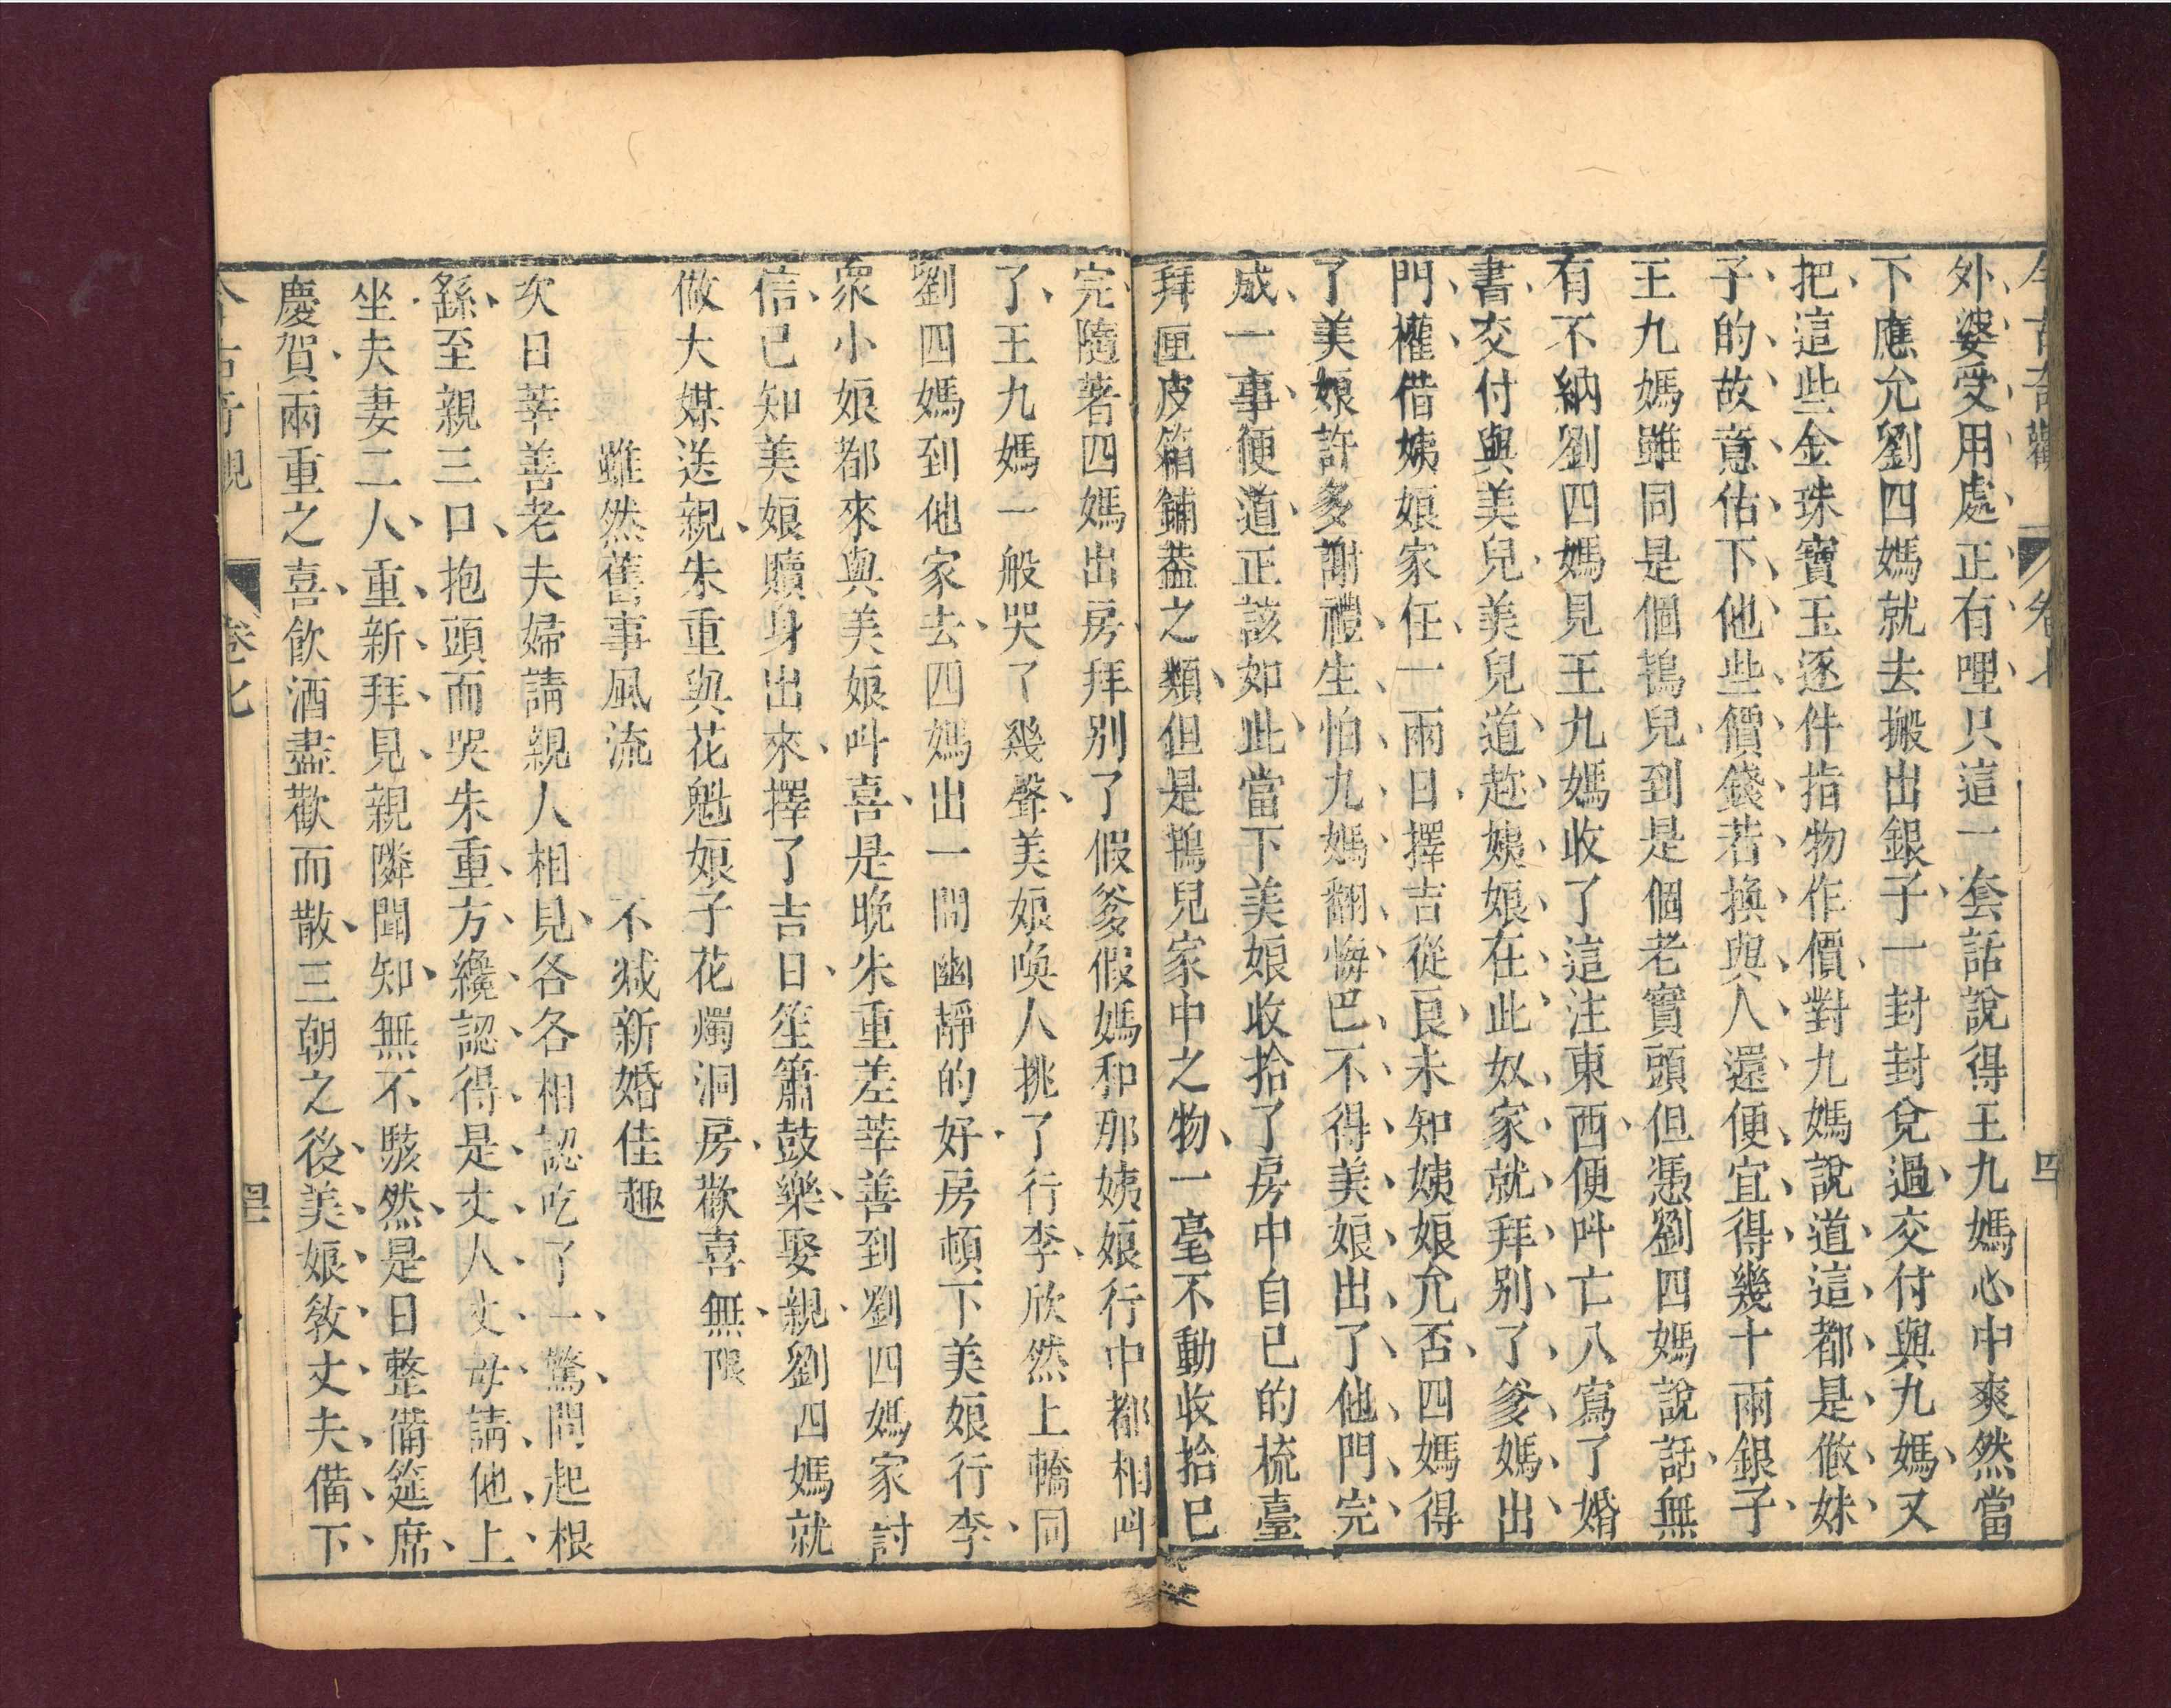 今古奇觀 卷七
外婆受用處正有哩只這一套話說得王九媽心中爽然當
下應允劉四媽就去搬出銀子一封封兌過交付與九媽又
把這些金珠寶玉逐件指物作價對九媽說道這都是做妹
子的故意估下他些價錢若換與人還便宜得幾十兩銀子
王九媽雖同是個鴇兒到是個老實頭但憑劉四媽說話無
有不納劉四媽見王九媽收了這注東西便叫亡八寫了婚
書交付與美兒美兒道趂姨娘在此奴家就拜別了爹媽出
門權借姨娘家住一兩日擇吉從良未知姨娘允否四媽得
了美娘許多謝禮生怕九媽翻悔巴不得美娘出了他門完
成一事便道正該如此當下美娘收拾了房中自己的梳臺
拜匣皮箱鋪蓋之類但是鴇兒家中之物一毫不動收拾已
完隨著四媽出房拜別了假爹假媽和那姨娘行中都相叫
了王九媽一般哭了幾聲美娘喚人挑了行李欣然上轎同
劉四媽到他家去四媽出一間幽靜的好房頓下美娘行李
衆小娘都來與美娘叫喜是晚朱重差莘善到劉四媽家討
信已知美娘贖身出來擇了吉日笙簫鼓樂娶親劉四媽就
做大媒送親朱重與花魁娘子花燭洞房歡喜無限
雖然舊事風流 不減新婚佳趣
次日莘善老夫婦請親人相見各各相認吃了一驚問起根
繇至親三口抱頭而哭朱重方纔認得是丈人丈母請他上
坐夫妻二人重新拜見親隣聞知無不駭然是日整備筵席
慶賀兩重之喜飲酒盡歡而散三朝之後美娘敎丈夫備下
今古奇觀 卷七